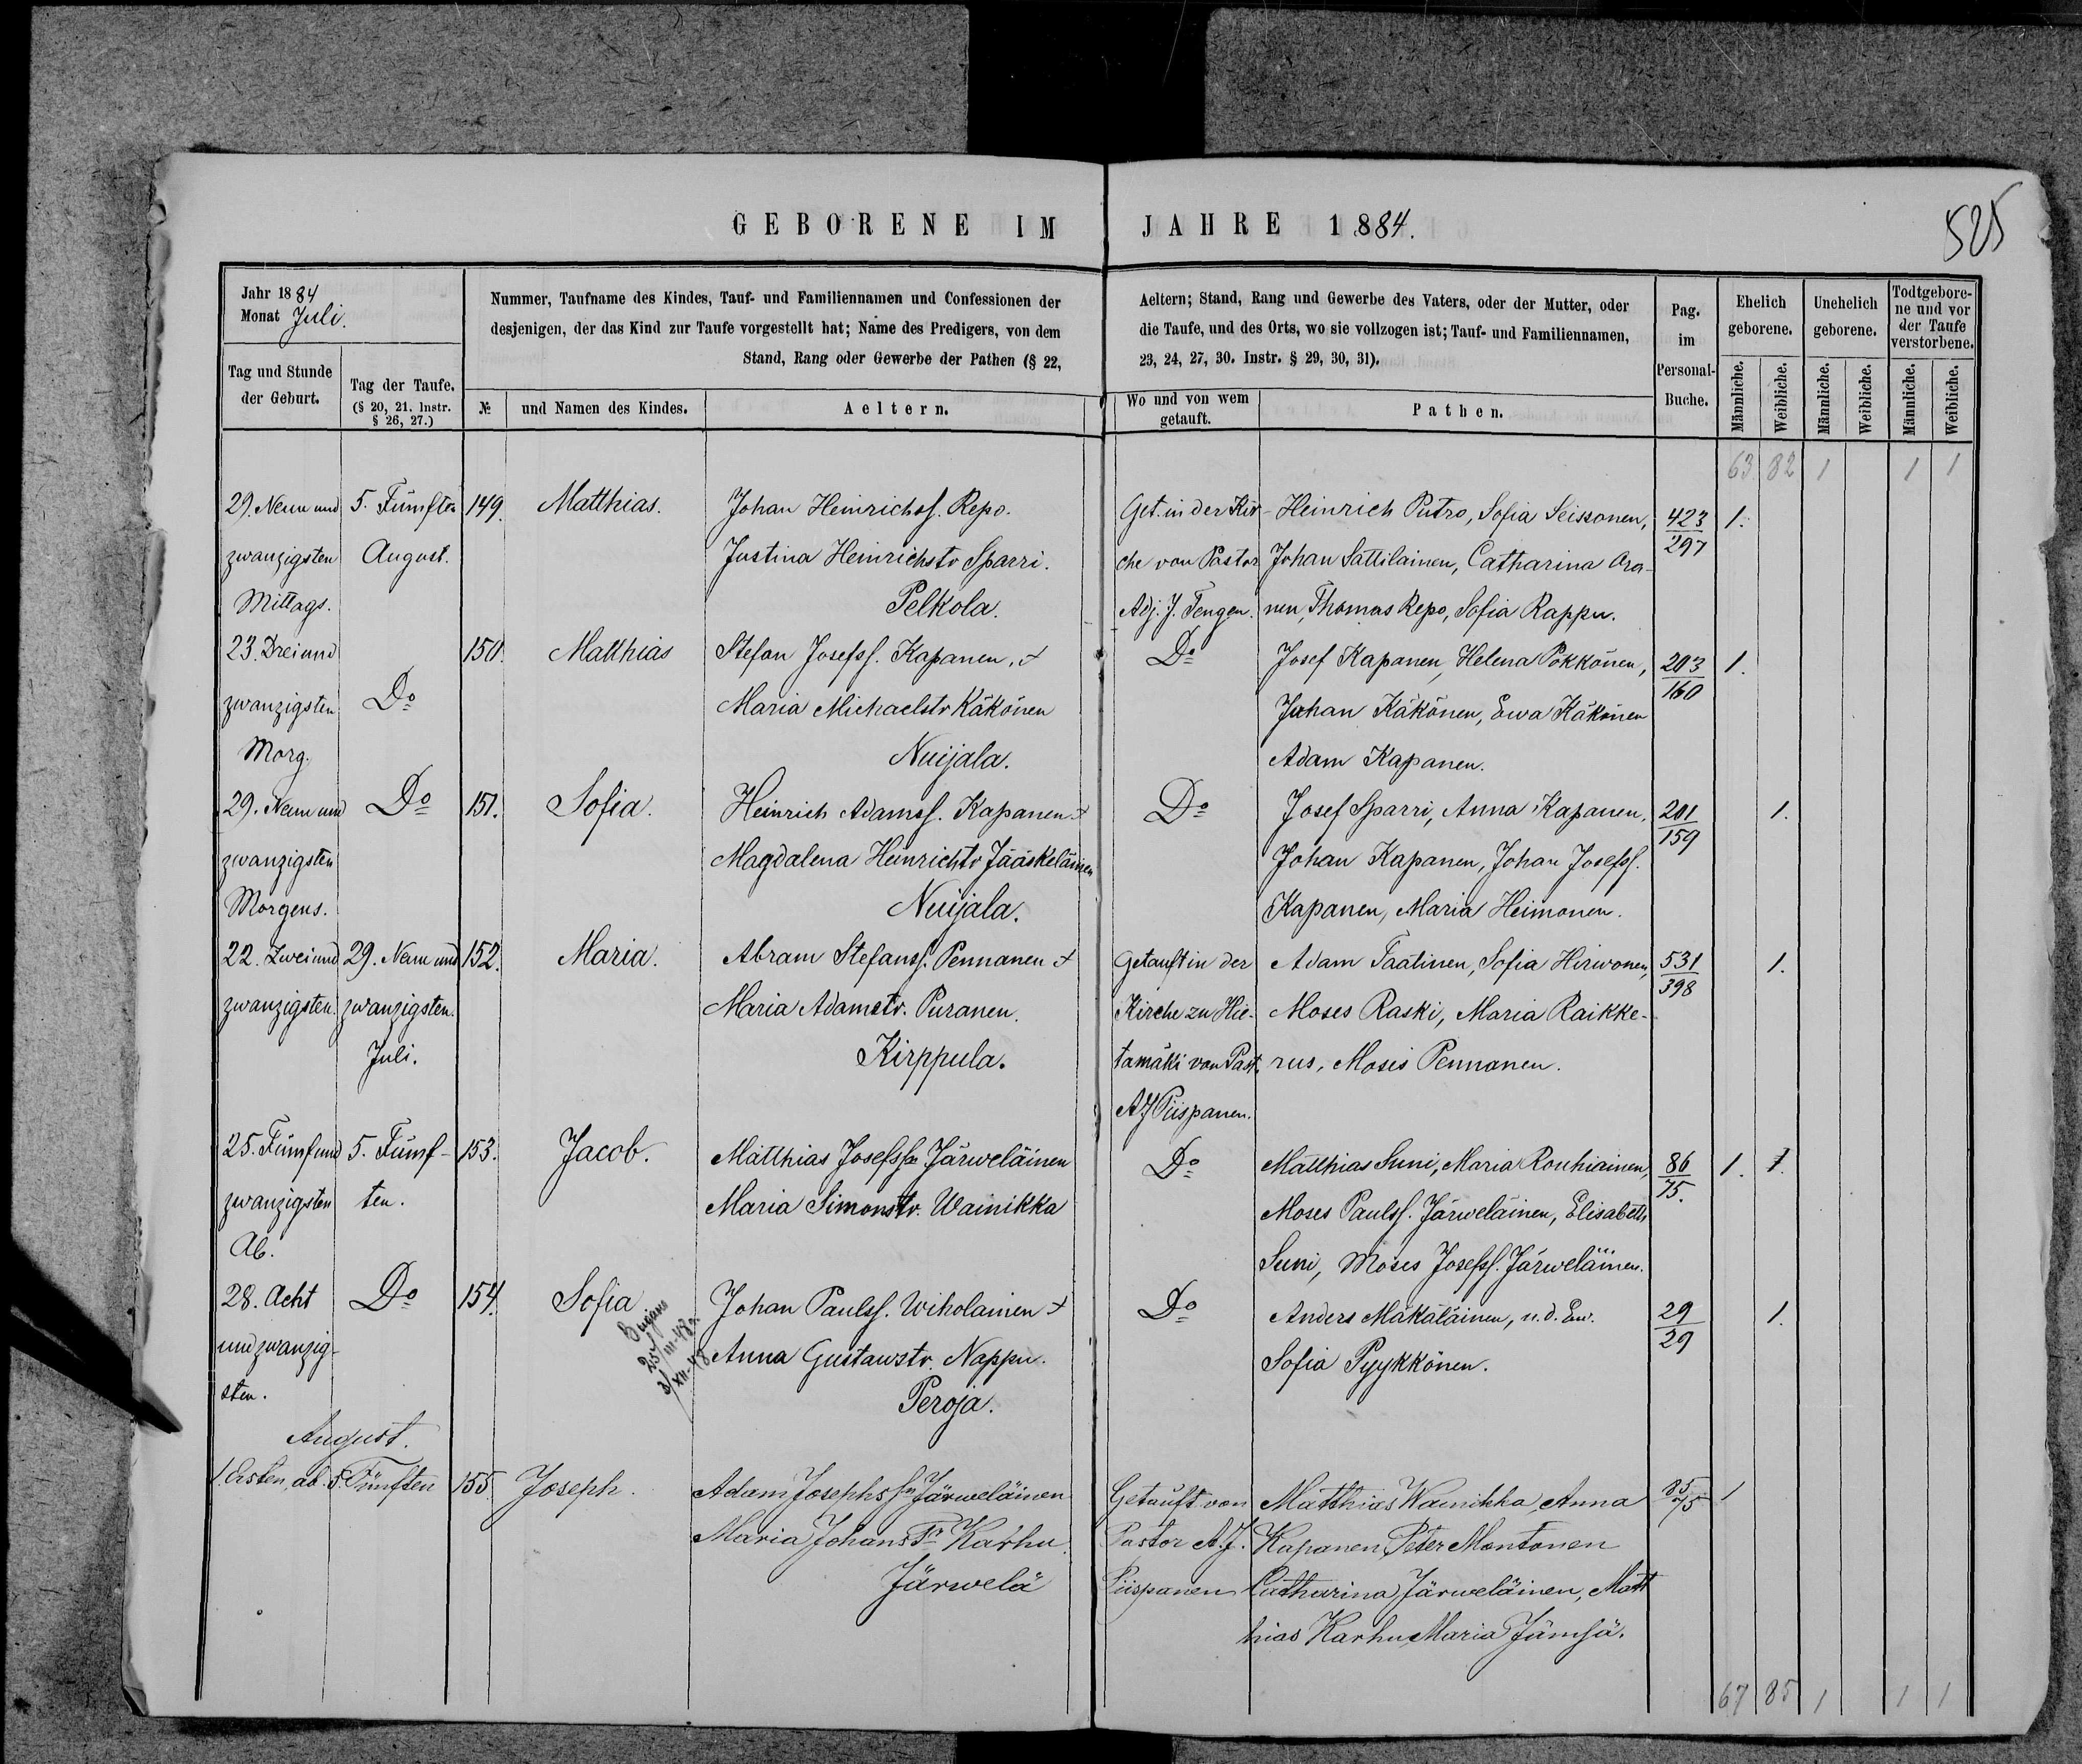 GEBORENE IM JAHRE 1884.
525
Jahr 1884
Monat Juli.
Nummer, Taufname des Kindes, Tauf- und Familiennamen und Confessionen der
desjenigen, der das Kind zur Taufe vorgestellt hat; Name des Predigers, von dem
Stand, Rang oder Gewerbe der Pathen (§ 22,
Aeltern; Stand, Rang und Gewerbe des Vaters, oder der Mutter, oder
die Taufe, und des Orts, wo sie vollzogen ist; Tauf- und Familiennamen,
23, 24, 27, 30. Instr. § 29, 30, 31).
Pag. im Personal-Buche.
Ehelich geborene.
Unehelich geborene.
Todtgeborene und vor der Taufe verstorbene.
Tag und Stunde der Geburt.
Tag der Taufe.
(§ 20, 21. Instr. § 26, 27.)
№
und Namen des Kindes.
Aeltern.
Wo und von wem getauft.
Pathen.
Männliche. Weibliche. Männliche. Weibliche. Männliche. Weibliche.
63 82 1 1 1
29. Neun und 5. Fünften 149. Matthias. Johan Heinrichss. Repo. Get. in der Kir- Heinrich Putro, Sofia Seissonen, 423/297 1.
zwanzigsten August. Justina Heinrichstr Sparri. che von Pastor Johan Sattilainen, Catharina Ara-
Mittags. Pelkola. Adj. J. Tengen. nen, Thomas Repo, Sofia Rappu.
23. Drei und 150. Matthias Stefan Josefss. Kapanen, + Do Josef Kapanen, Helena Pokkönen, 203/160 1.
zwanzigsten Do Maria Michaelstr Käkönen Juhan Käkönen, Ewa Käkönen
Morg. Nuijala. Adam Kapanen.
29. Neun und Do 151. Sofia. Heinrich Adamss. Kapanen + Do Josef Sparri, Anna Kapanen, 201/159 1.
zwanzigsten Magdalena Heinrichtr Jääskeläinen Johan Kapanen, Johan Josefss.
Morgens. Nuijala. Kapanen, Maria Heimonen.
22. Zwei und 29. Neun und 152. Maria. Abram Stefanss. Pennanen + Getauft in der Adam Taatinen, Sofia Hirwonen, 531/398 1.
zwanzigsten. zwanzigsten. Maria Adamstr. Puranen. Kirche zu Hie- Moses Raski, Maria Raikke-
Juli. Kirppula. tamäki von Past. rus, Moses Pennanen.
AJ Piispanen.
25. Fünf und 5. Fünf- 153. Jacob. Matthias Josefss Järweläinen Do Matthias Suni, Maria Rouhiainen, 86/75. 1. 1.
zwanzigsten ten. Maria Simonstr. Wainikka Moses Paulss. Järweläinen, Elisabeth
Ab. Suni, Moses Josefss. Järweläinen.
28. Acht Do 154. Sofia Johan Paulss. Wiholainen + Do Anders Mäkäläinen, u. d. Ew. 29/29 1.
25/III-43
3/XII-43
und zwanzig- Anna Gustawstr. Nappu. Sofia Pyykkönen.
sten. Peroja.
August.
1. Ersten, ab. 5. Fünften 155. Joseph. Adam Josephs Sn Järweläinen Getauft von Matthias Wainikka, Anna 85/75 1
Maria Johans Tr Karhu. Pastor A.J. Kapanen, Peter Montonen
Järwelä Piispanen Catharina Järweläinen, Matt
hias Karhu, Maria Jämsä.
67 85 1 1 1